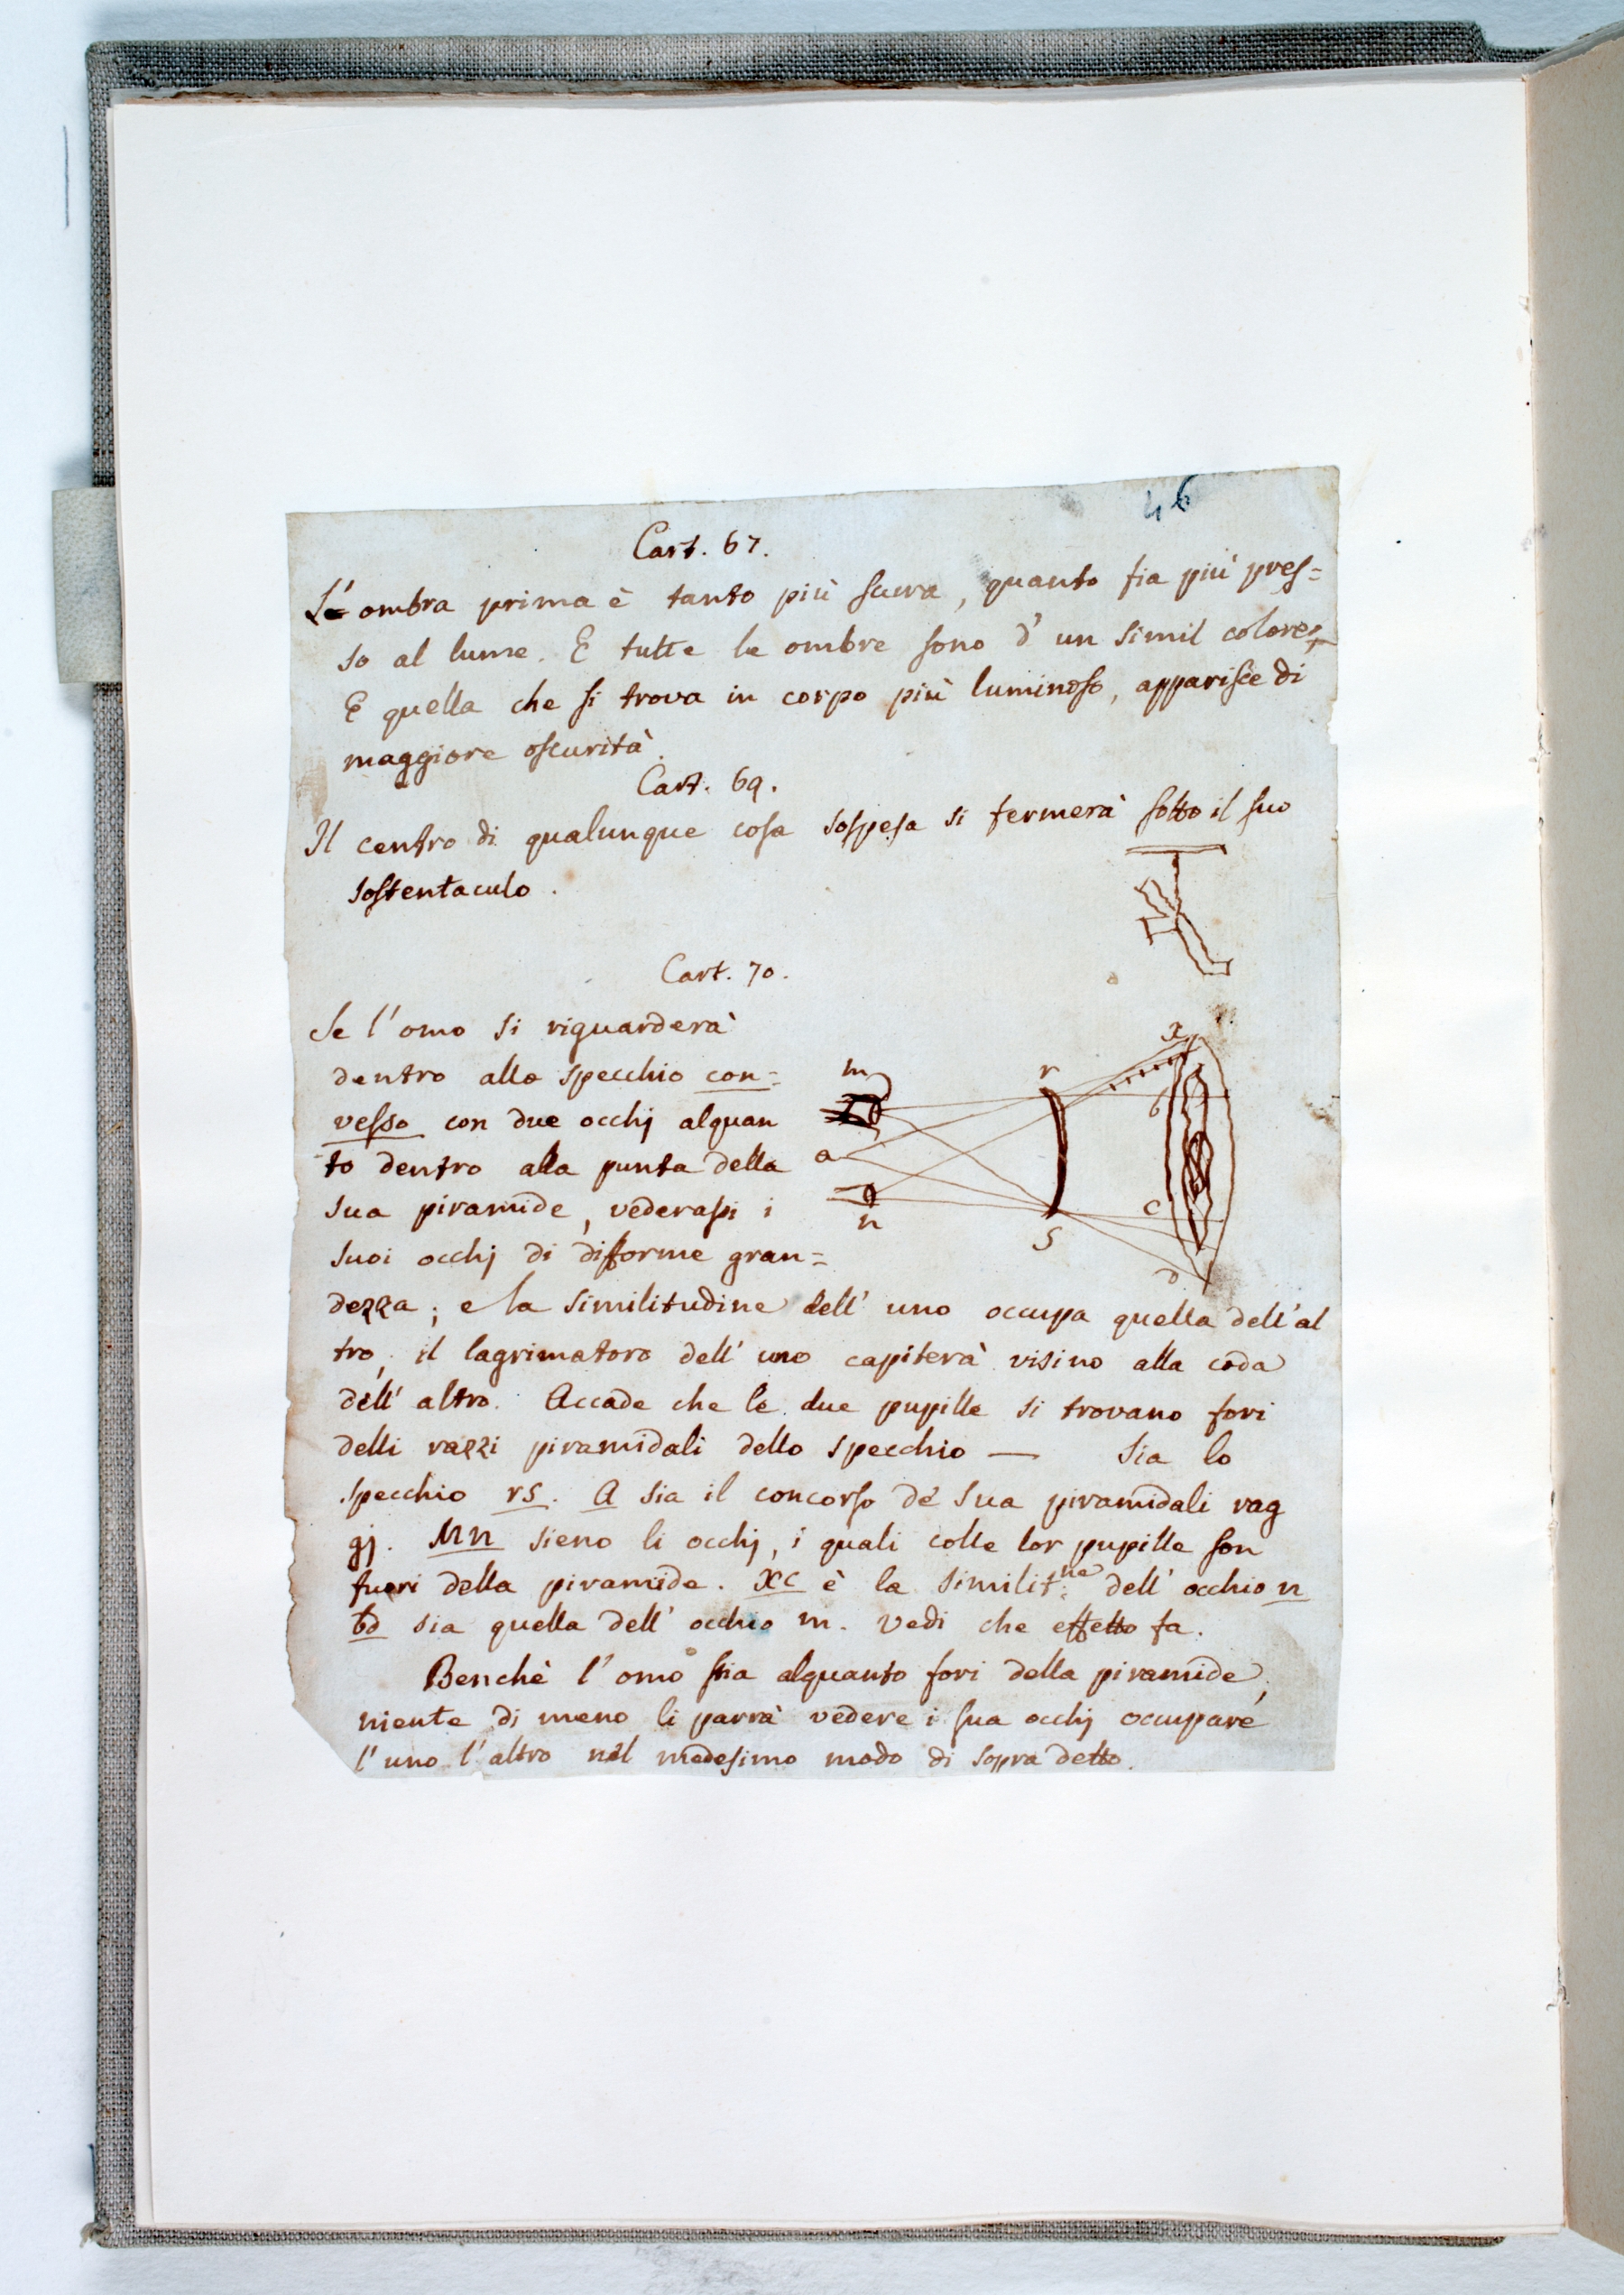 46
Cart. 67.
L' ombra prima è tanto più scura, quanto fia più pres=
so al lume. E tutte le ombre sono d' un simil colore,
E quella che si trova in corpo più luminoso, apparisce di
maggiore oscurità.
Cart. 69.
Il centro di qualunque cosa sospesa si fermerà sotto il suo
sostentaculo.
Cart. 70.
Se l'omo si riguarderà
dentro allo specchio con=
vesso con due occhj alquan
to dentro alla punta della
sua piramide, vederassi i
suoi occhj di difforme gran=
dezza; e la similitudine dell' uno occupa quella dell' al
tro, il lagrimatoro dell' uno capiterà visino alla coda
dell' altro. Accade che le due pupille si trovano fori
delli razzi piramidali dello specchio — Sia lo
specchio rs. A sia il concorso de' sua piramidali rag
gj. Mn sieno li occhj, i quali colle lor pupille son
fuori della piramide. xc è la similit:ne dell' occhio n
bd sia quella dell' occhio m. Vedi che effetto fa.
Benchè l' omo stia alquanto fori della piramide,
niente di meno li parrà vedere i sua occhj occupare
l' uno l' altro nel medesimo modo di sopra detto.
m
a
n
r
s
x
b
c
d